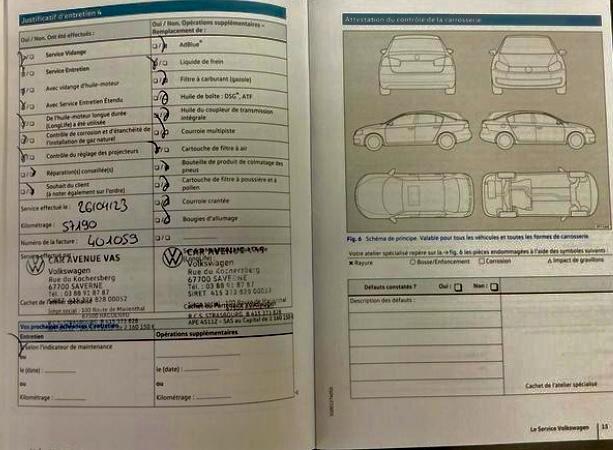 Justificatif d'entretien 4
Oui / Non. Ont été effectués :
Service Vidange
Service Entretien
Avec vidange d'huile-moteur
Avec Service Entretien Étendu
De l'huile-moteur longue durée
(LongLife) a été utilisée
Contrôle de corrosion et d'étanchéité de
l'installation de gaz naturel
Contrôle du réglage des projecteurs
Réparation(s) conseillée(s)
Souhait du client
(à noter également sur l'ordre)
Service effectué le : 26/04/23
Kilométrage : 57190
Numéro de la facture : 401059
CAR'AVENUE VAS
Volkswagen
Rue du Kochersberg
67700 SAVERNE
Tél. : 03 88 91 87 87
Oui / Non. Opérations supplémentaires –
Remplacement de :
AdBlue®
Liquide de frein
Filtre à carburant (gazole)
Huile de boîte : DSG®, ATF
Huile du coupleur de transmission
intégrale
Courroie multipiste
Cartouche de filtre à air
Bouteille de produit de colmatage des
pneus
Cartouche de filtre à poussière et à
pollen
Courroie crantée
Bougies d'allumage
CAR'AVENUE
Volkswagen
Rue du Kochersberg
67700 SAVERNE
Tél. : 03 88 91 87 87
Vos prochaines échéances d'entretien
Entretien
selon l'indicateur de maintenance
ou
le (date) :
ou
Kilométrage :
Opérations supplémentaires
le (date) :
ou
Kilométrage :
Attestation du contrôle de la carrosserie
Fig. 6 Schéma de principe. Valable pour tous les véhicules et toutes les formes de carrosserie.
Votre atelier spécialisé repère sur la → fig. 6 les pièces endommagées à l'aide des symboles suivants :
× Rayure ○ Bosse/Enfoncement □ Corrosion △ Impact de gravillons
Défauts constatés ? Oui : Non :
Description des défauts :
Cachet de l'atelier spécialisé
Le Service Volkswagen 15